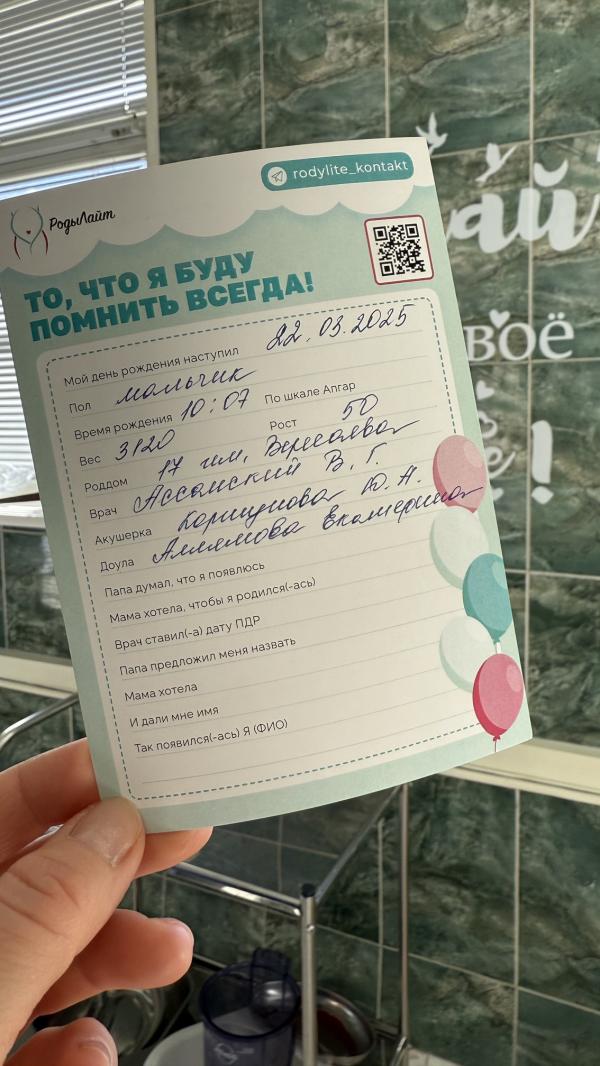 rodylite_kontakt
РодыЛайт
ТО, ЧТО Я БУДУ
ПОМНИТЬ ВСЕГДА!
Мой день рождения наступил 22.03.2025
Пол мальчик
Время рождения 10:07 По шкале Апгар
Вес 3120 Рост 50
Роддом 17 им,
Врач Ассамский В. Г.
Акушерка Коршунова Ю. А.
Доула Аллямова Екатерина
Папа думал, что я появлюсь
Мама хотела, чтобы я родился(-ась)
Врач ставил(-а) дату ПДР
Папа предложил меня назвать
Мама хотела
И дали мне имя
Так появился(-ась) Я (ФИО)
воё
!